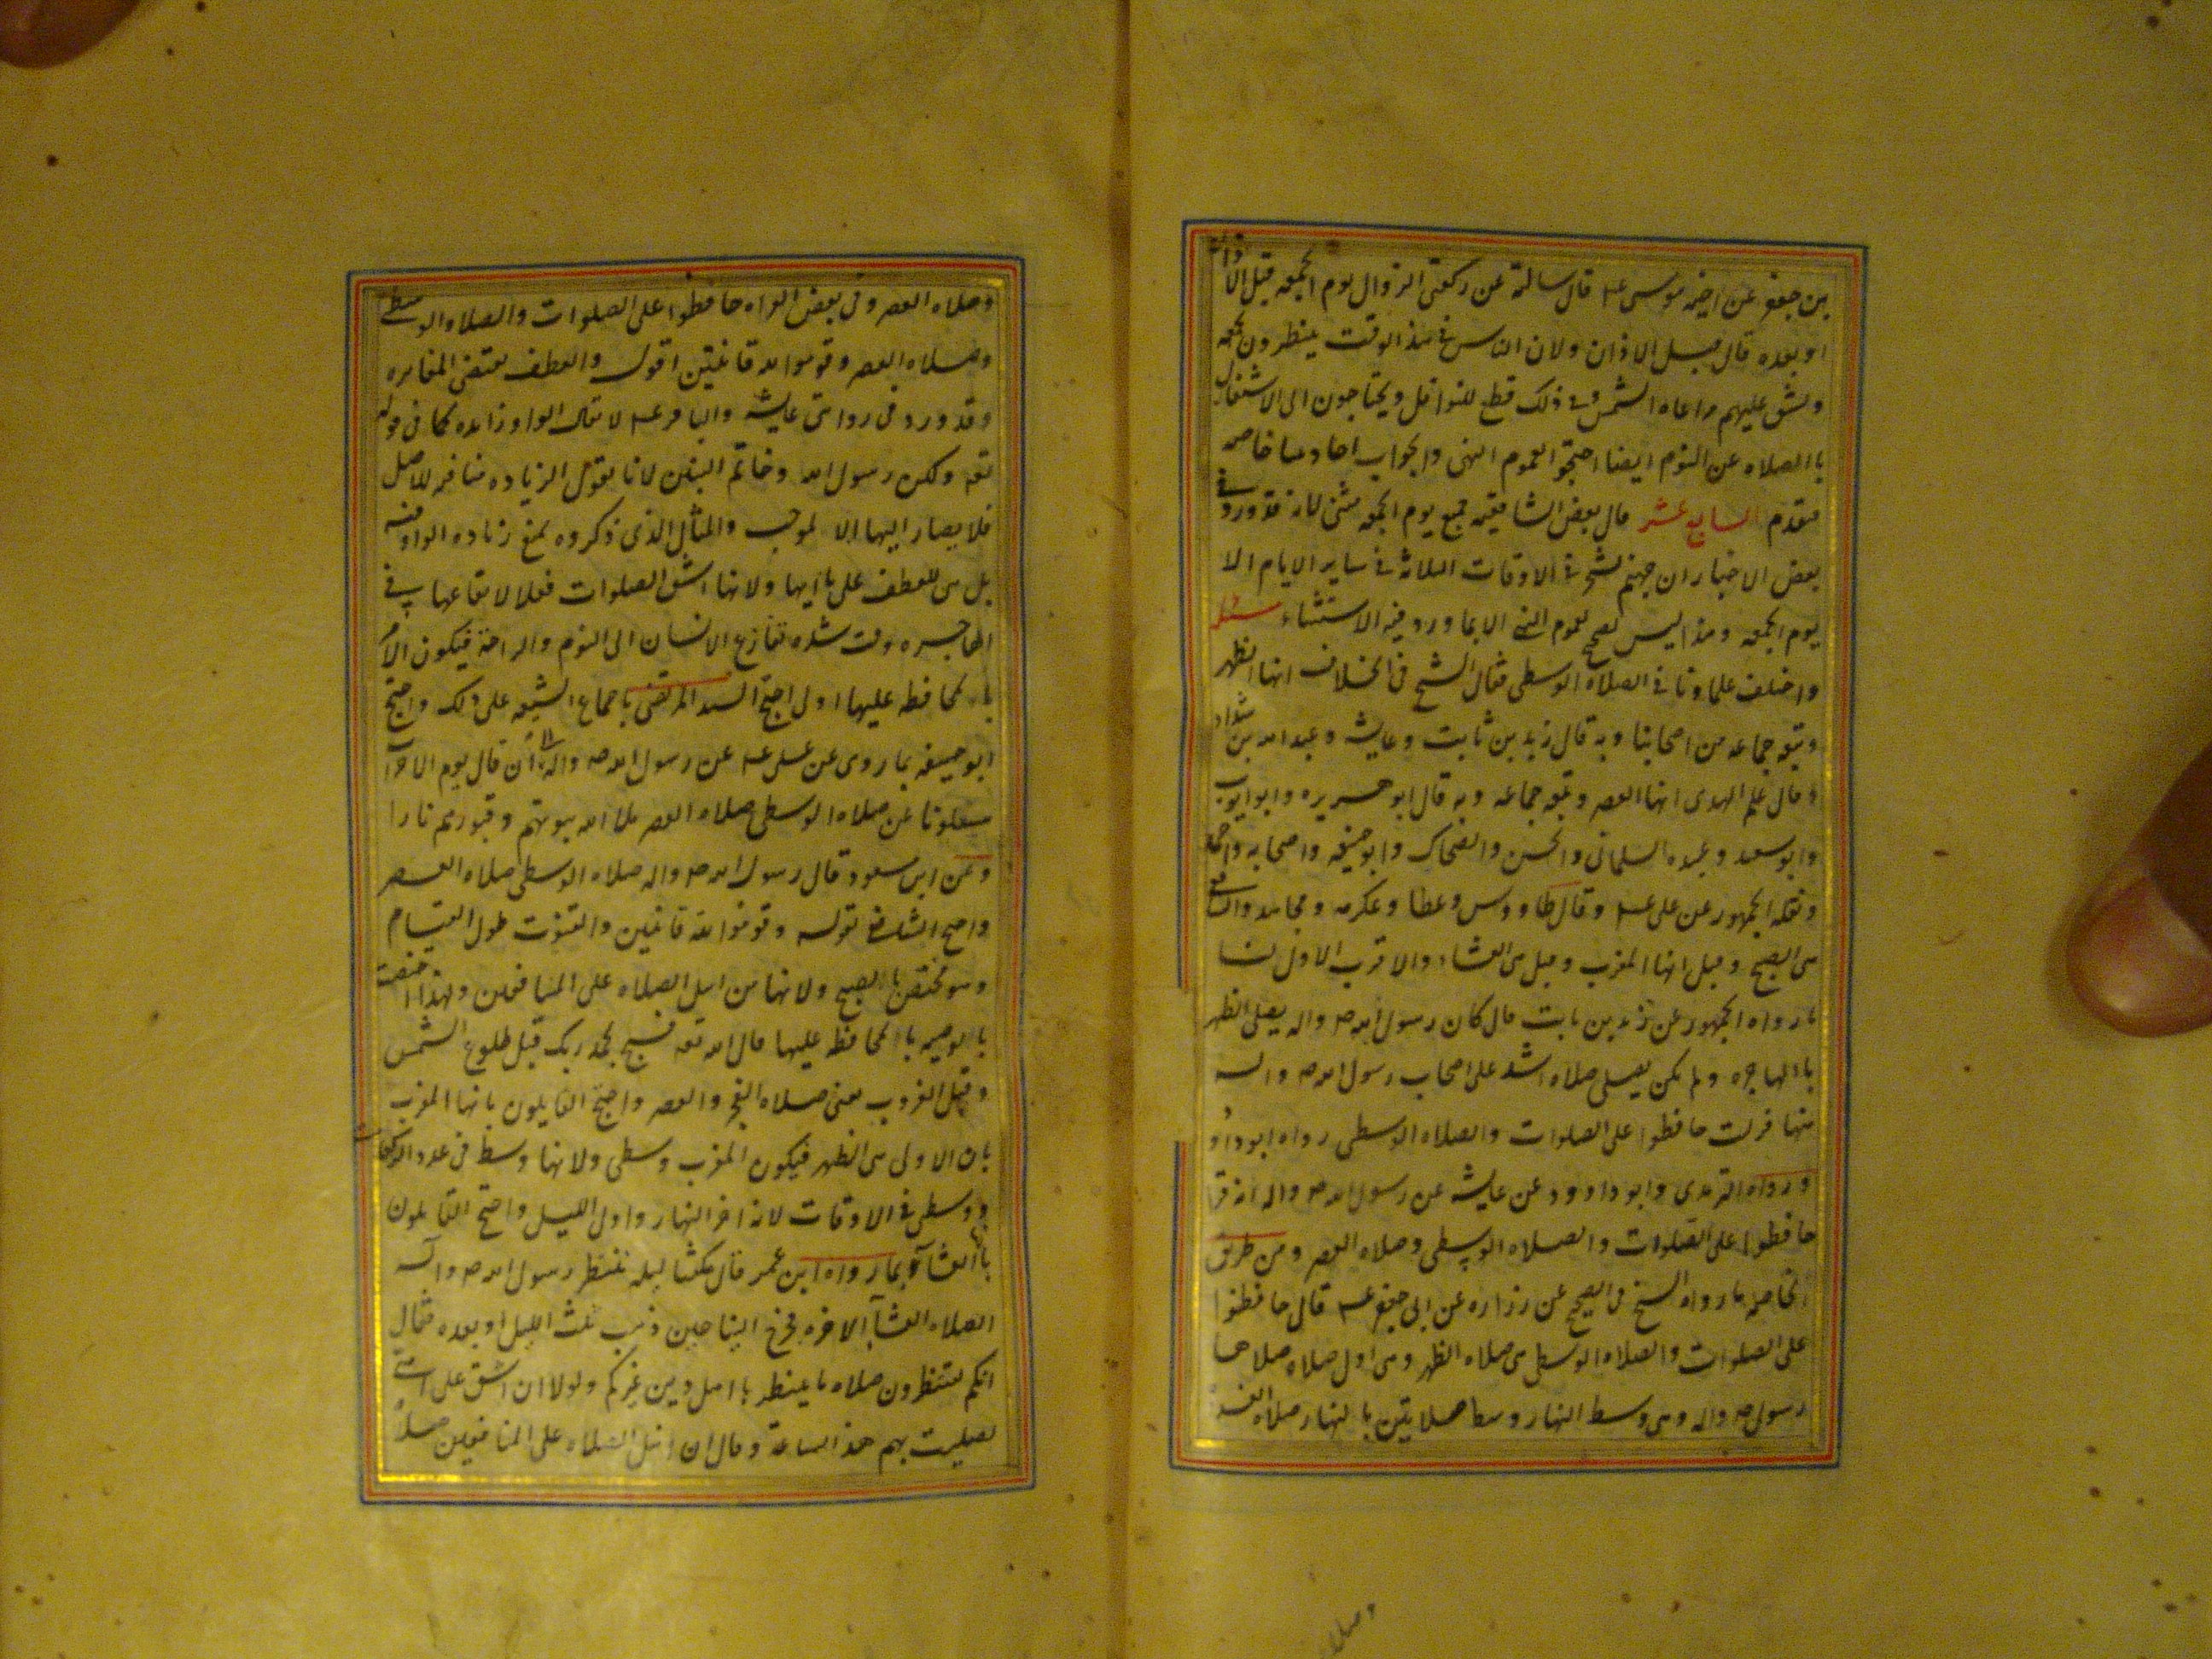 بن جعفر عن اخيه موسى عه قال سالته عن ركعتى الزوال يوم الجمعه قبل الاذان
او بعده قال قبل الاذان ولان الناس فى هذا الوقت ينتظرون الجمعه
ويشق عليهم مراعاه الشمس وفى ذلك قطع للنوافل ويحتاجون الى الاشتغال
بالصلاه عن النوم ايضا احتجوا بعموم النهى والجواب احاديثنا خاصه
فيقدم السابع عشر قال بعض الشافعيه جميع يوم الجمعه مستثنى لانه قد ورد فى
بعض الاخبار ان جهنم تسجر فى الاوقات الثلاثة فى ساير الايام الا
يوم الجمعه وهذا ليس بصحيح لعموم النهى الا بما ورد فيه الاستثناء مسئله
واختلف علماونا فى الصلاه الوسطى فقال الشيخ فى الخلاف انها الظهر
وتبعه جماعه من اصحابنا وبه قال زيد بن ثابت وعايشه وعبد الله بن شداد
وقال علم الهدى انها العصر وتبعه جماعه وبه قال ابو هريره وابو ايوب
وابو سعيد وعبيده السلمانى والحسن والضحاك وابو حنيفه واصحابه واحمد
ونقله الجمهور عن على عه وقال طاووس وعطا وعكرمه ومجاهد والشافعى
هى الصبح وقيل انها المغرب وقيل هى العشاء والاقرب الاول لنا
ما رواه الجمهور عن زيد بن ثابت قال كان رسول الله صه واله يصلى الظهر
بالهاجره ولم يكن يصلى صلاه اشد على اصحاب رسول الله صه واله
منها فنزلت حافظوا على الصلوات والصلاه الوسطى رواه ابو داود
وروى الترمذى وابو داوود عن عايشه عن رسول الله صه واله انه قرا
حافظوا على الصلوات والصلاه الوسطى وصلاه العصر ومن طريق
الخاصه ما رواه الشيخ فى الصحيح عن زراره عن ابى جعفر عه قال حافظوا
على الصلوات والصلاه الوسطى هى صلاه الظهر وهى اول صلاه صلاها
رسول صه واله وهى وسط النهار وسط صلاتين بالنهار صلاه الغداة
وصلاه العصر وفى بعض القراه حافظوا على الصلوات والصلاه الوسطى
وصلاه العصر وقوموا لله قانتين اقول والعطف يقتضى المغايره
وقد ورد فى روايتى عايشه والباقر عه لا يقال الواو زايده كما فى قوله
تعه ولكن رسول الله وخاتم النبيين لانا نقول الزياده منافيه للاصل
فلا يصار اليها الا لموجب والمثال الذى ذكروه نمنع زياده الواو فيه
بل هى للعطف على بابها ولانها اشق الصلوات فعلا لايقاعها فى
الهاجره وقت شده تنازع الانسان الى النوم والراحة فيكون الامر
بالمحافظه عليها اولى احتج السيد المرتضى باجماع الشيعه على ذلك واحتج
ابو حنيفه بما روى عن على عه عن رسول الله صه واله انه قال يوم الاحزاب
شغلونا عن صلاه الوسطى صلاه العصر ملا الله بيوتهم وقبورهم نارا
وعن ابن مسعود قال رسول الله صه واله صلاه الوسطى صلاه العصر
واحتج الشافعى بقوله وقوموا لله قانتين والقنوت طول القيام
وهو مختص بالصبح ولانها من اثقل الصلاه على المنافقين ولهذا اختصت
بالوصيه بالمحافظه عليها قال الله تعه فسبح بحمد ربك قبل طلوع الشمس
وقبل الغروب يعنى صلاه الفجر والعصر واحتج القايلون بانها المغرب
بان الاولى هى الظهر فيكون المغرب وسطى ولانها وسط فى عدد الركعات
ووسطى فى الاوقات لانه اخر النهار واول الليل واحتج القايلون
بالعشاء بما رواه ابن عمر قال مكثنا ليله ننتظر رسول الله صه واله
الصلاه العشآ الاخره فخرج الينا حين ذهب ثلث الليل او بعده فقال
انكم لتنتظرون صلاه ما ينتظرها اهل دين غيركم ولولا ان اشق على امتى
لصليت بهم هذه الساعة وقال ان اثقل الصلاه على المنافقين صلاه